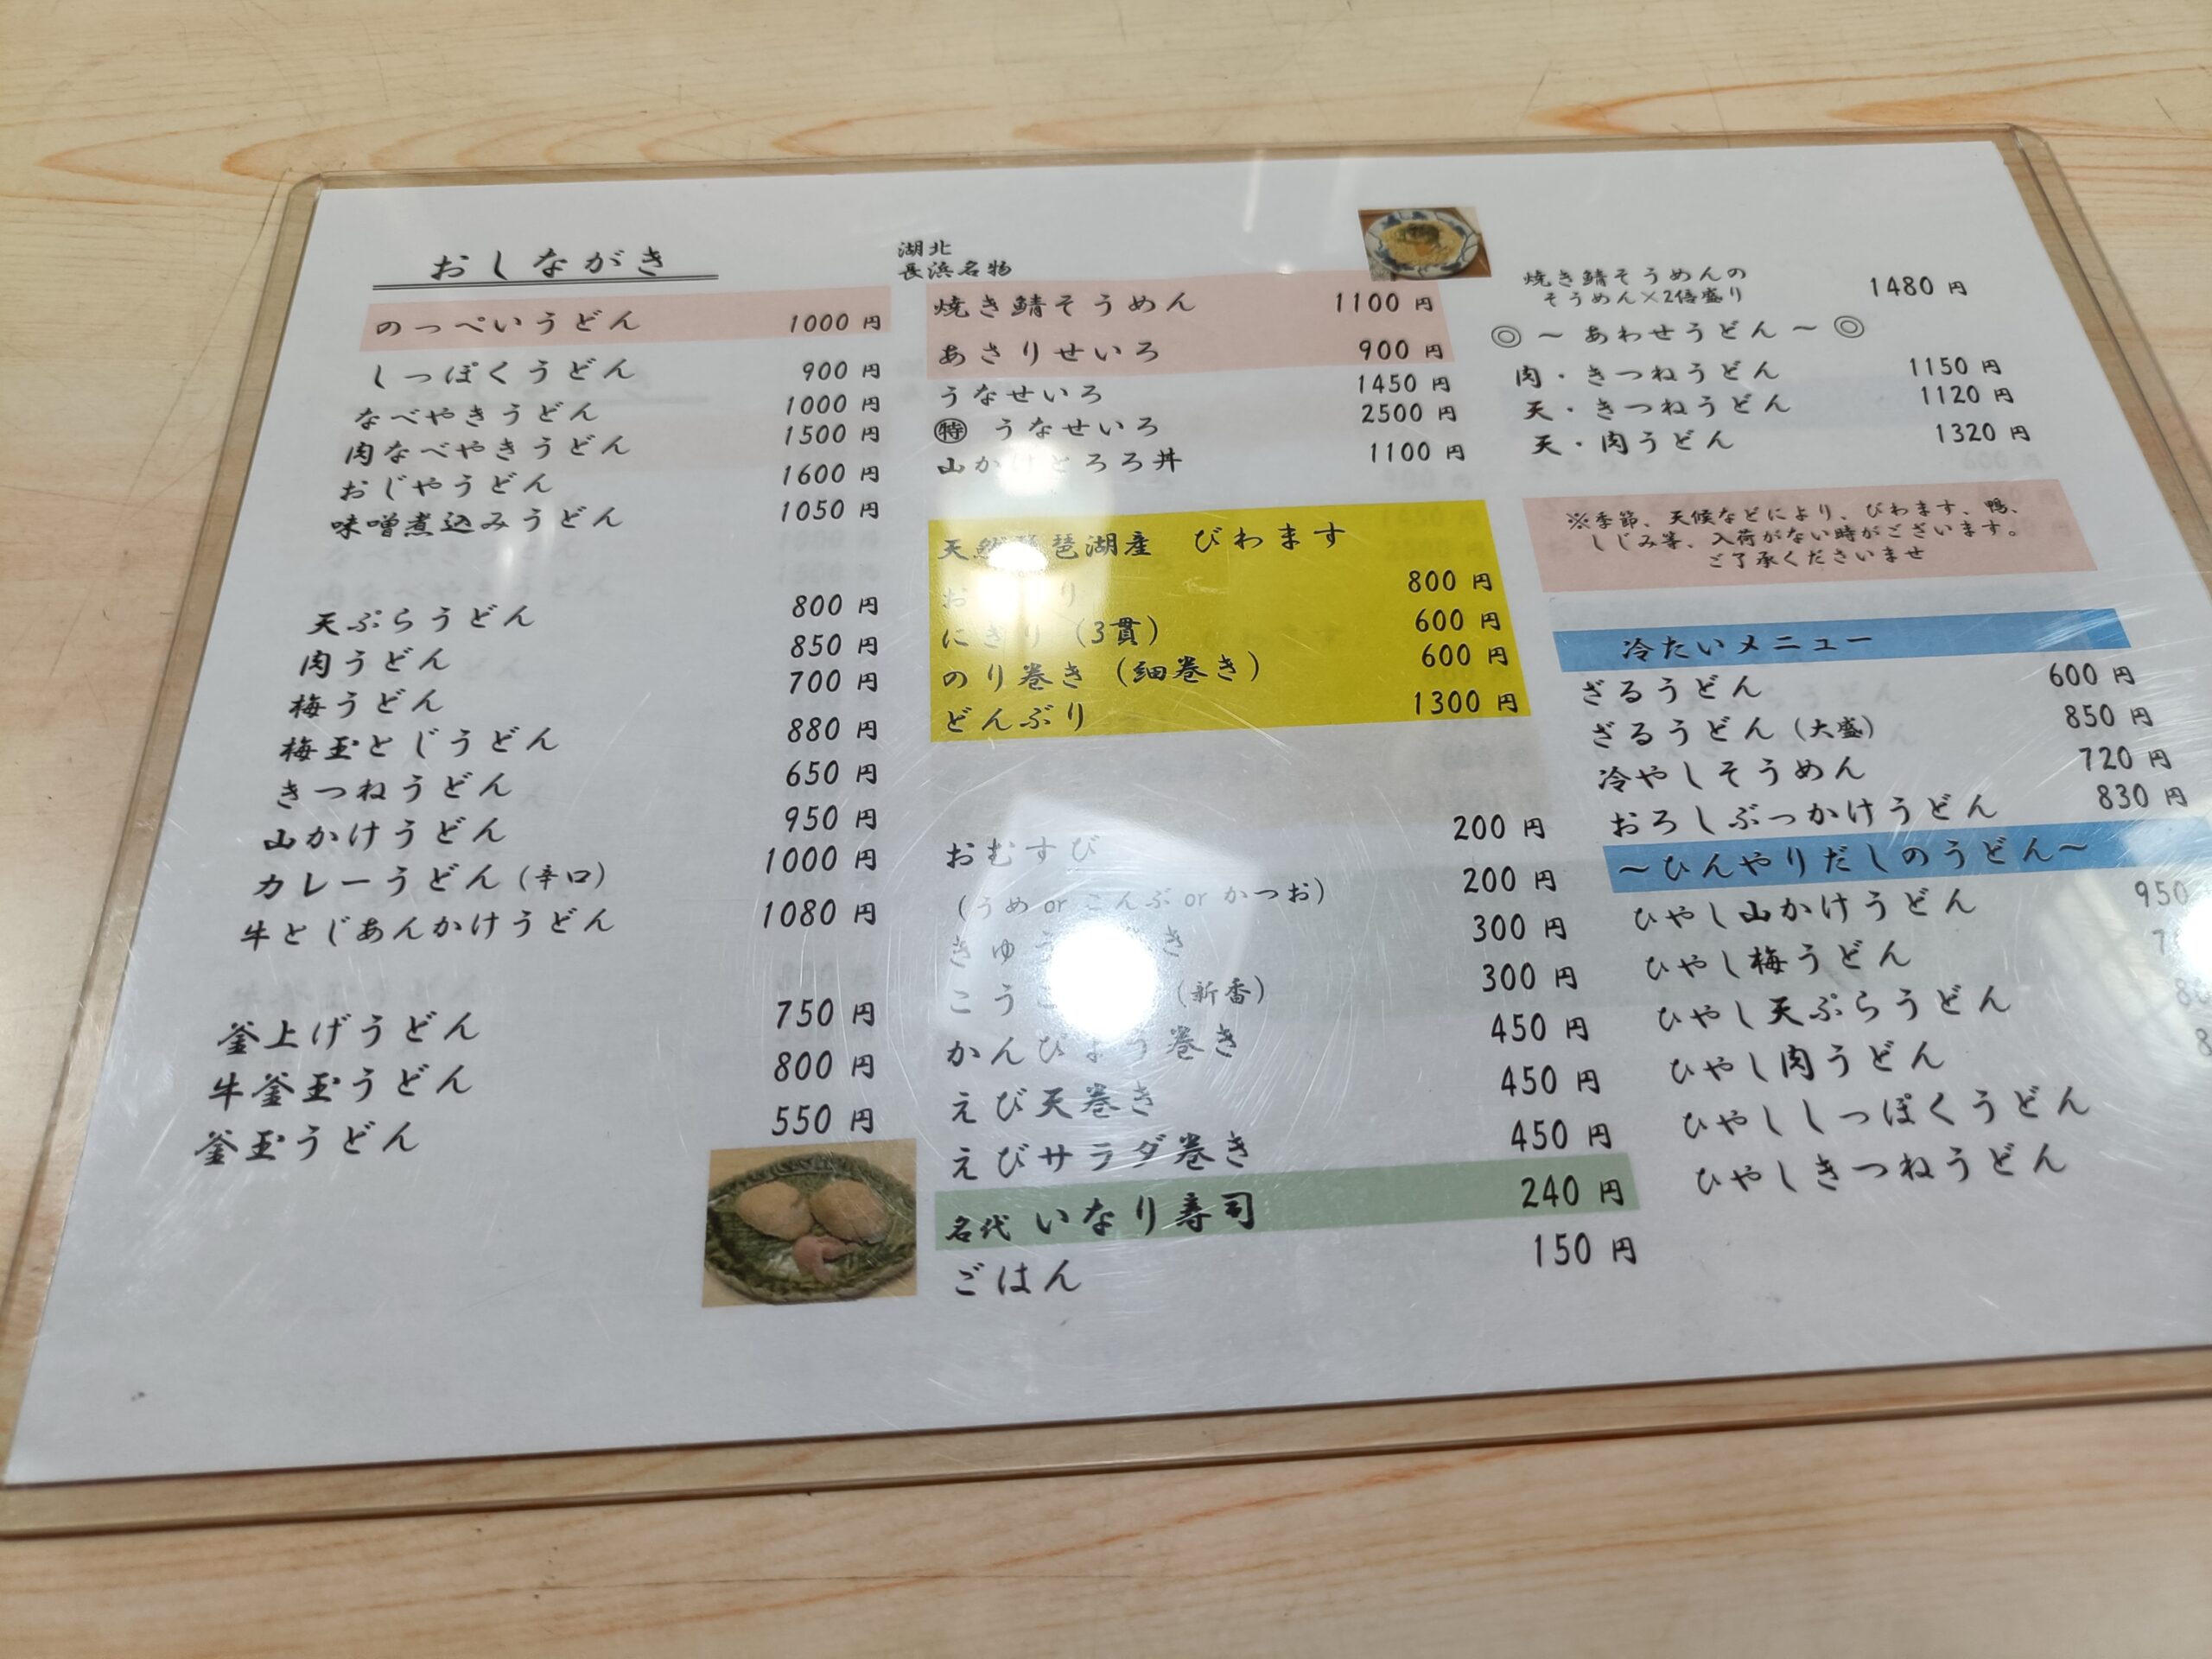 おしながき
のっぺいうどん 1000円
しっぽくうどん 900円
なべやきうどん 1000円
肉なべやきうどん 1500円
おじやうどん 1600円
味噌煮込みうどん 1050円
天ぷらうどん 800円
肉うどん 850円
梅うどん 700円
梅玉とじうどん 880円
きつねうどん 650円
山かけうどん 950円
カレーうどん(辛口) 1000円
牛とじあんかけうどん 1080円
釜上げうどん 750円
牛釜玉うどん 800円
釜玉うどん 550円
湖北
長浜名物
焼き鯖そうめん 1100円
あさりせいろ 900円
うなせいろ 1450円
㊕ うなせいろ 2500円
山かけとろろ丼 1100円
天然琵琶湖産 びわます
800円
にぎり(3貫) 600円
のり巻き(細巻き) 600円
どんぶり 1300円
おむすび 200円
(うめ or こんぶ or かつお) 200円
300円
(新香) 300円
かんぴょう巻き 450円
えび天巻き 450円
えびサラダ巻き 450円
名代 いなり寿司 240円
ごはん 150円
焼き鯖そうめんの
そうめん×2倍盛り 1480円
◎ ~ あわせうどん ~ ◎
肉・きつねうどん 1150円
天・きつねうどん 1120円
天・肉うどん 1320円
※季節、天候などにより、びわます、鴨、
しじみ等、入荷がない時がございます。
ご了承くださいませ
冷たいメニュー
ざるうどん 600円
ざるうどん(大盛) 850円
冷やしそうめん 720円
おろしぶっかけうどん 830円
~ひんやりだしのうどん~
ひやし山かけうどん 950
ひやし梅うどん
ひやし天ぷらうどん
ひやし肉うどん
ひやししっぽくうどん
ひやしきつねうどん